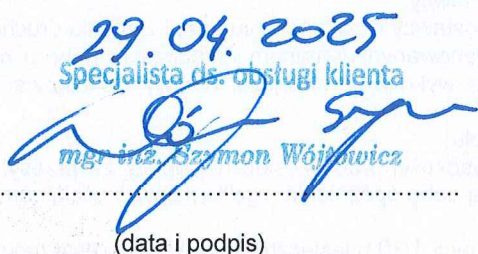 29.04.2025
Specjalista ds. obsługi klienta
mgr inż. Szymon Wójtowicz
(data i podpis)